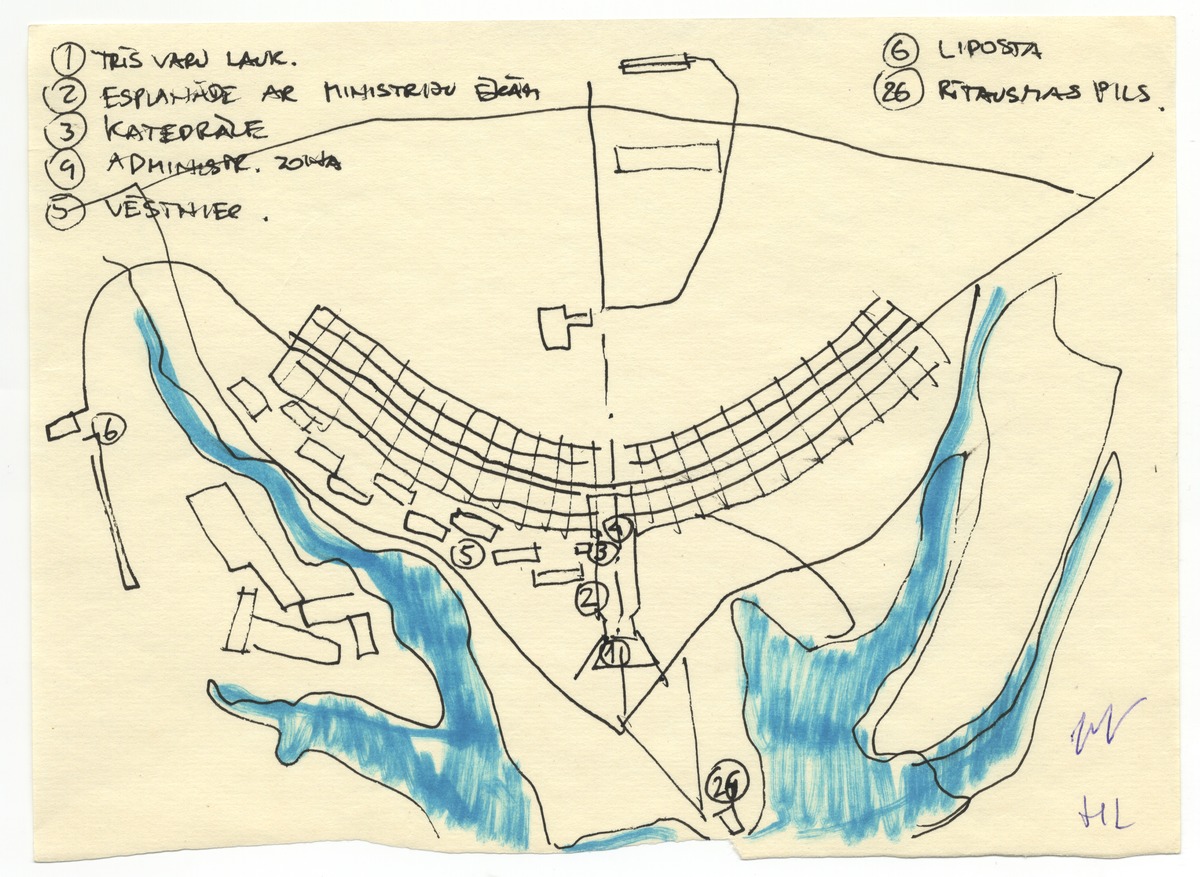 ① TRĪS VARU LAUK.
② ESPLANĀDE AR MINISTRIJU ĒKĀM
③ KATEDRĀLE
④ ADMINISTR. ZONA
⑤ VĒSTNIEC.
⑥ LIDOSTA
㉖ RĪTAUSMAS PILS.
⑥
④
③
⑤
②
①
㉖
HL